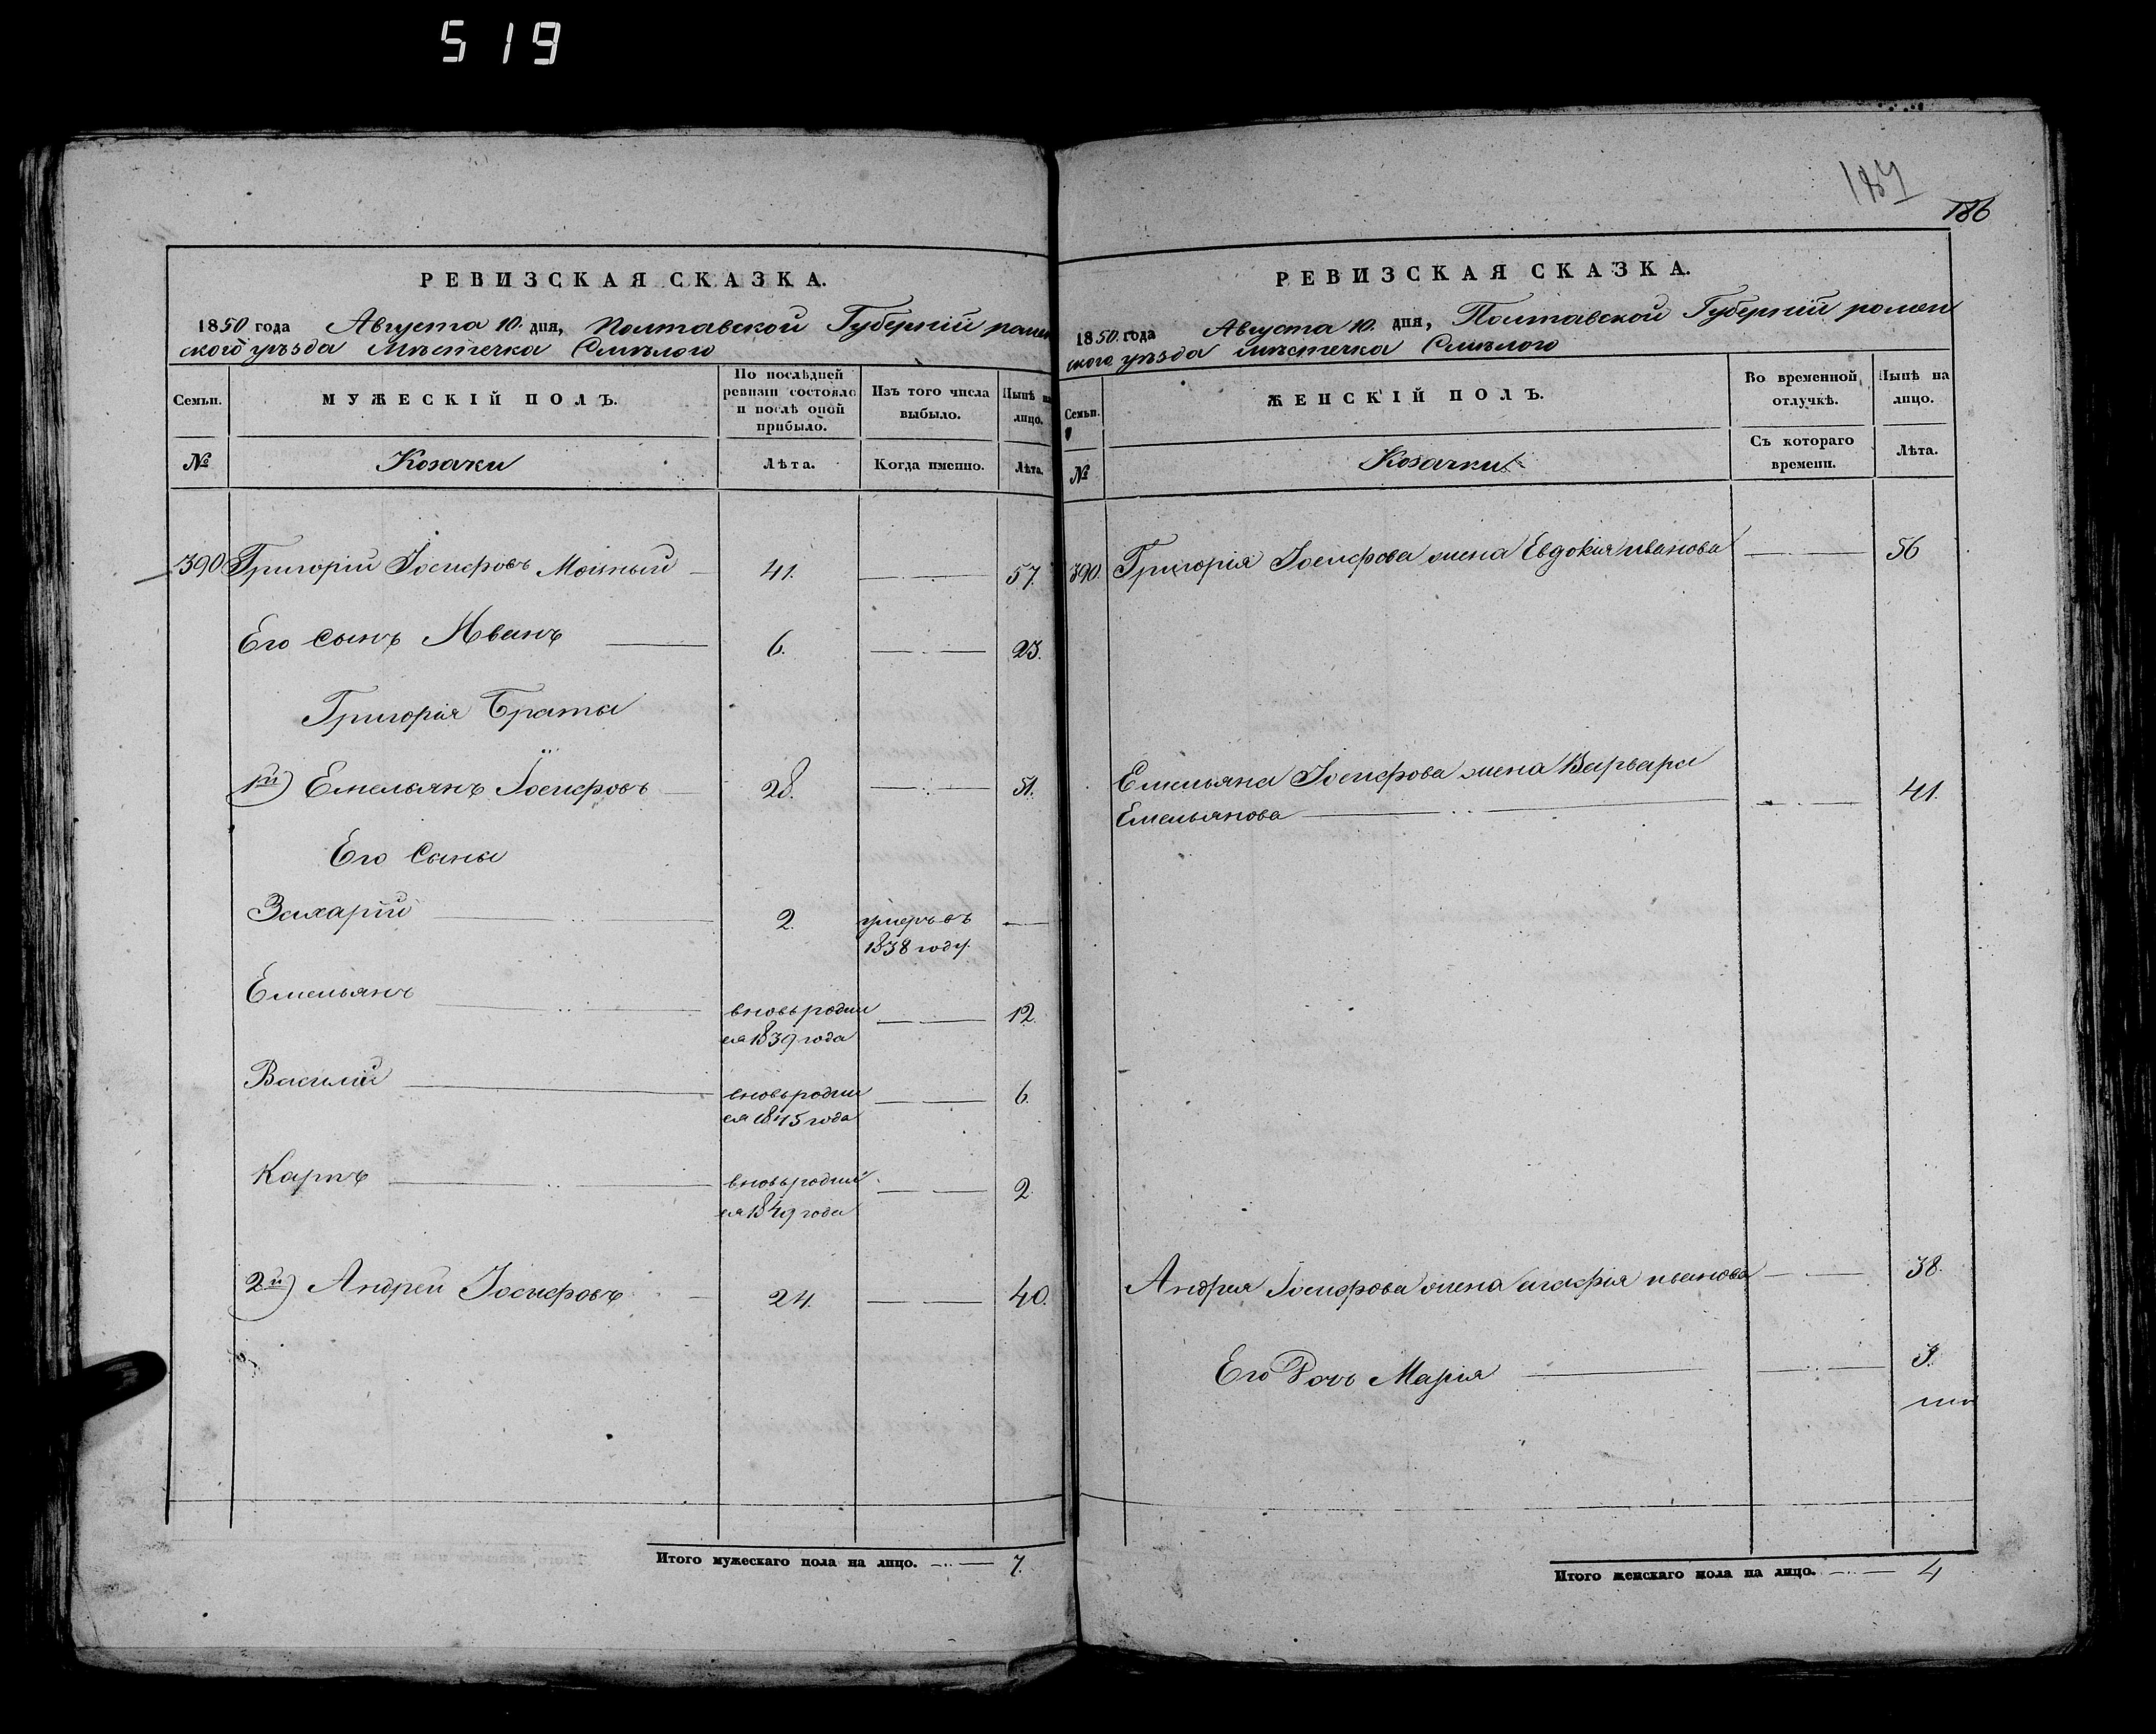 519
187
186
РЕВИЗСКАЯ СКАЗКА.
1850 года Августа 10. дня, Полтавской Губерніи ромен
ского уѣзда мѣстечка Смѣлого
Семьи.
МУЖЕСКІЙ ПОЛЪ.
По послѣдней ревизіи состояло и послѣ оной прибыло.
Изъ того числа выбыло.
Нынѣ на лицо.
№
Козаки
Лѣта.
Когда именно.
Лѣта.
390 Григорій Іосифовъ — 41. — 57.
Его сынъ Иванъ — 6. — 23.
Григорія Брати
1й) Емельянъ Іосифовъ — 28. — 51.
Его Сыны
Захарій — 2. умеръ въ —
1838 году.
Емельянъ — вновь родил — 12.
ся 1839 года
Василій — вновь родил — 6.
ся 1845 года
Карпъ — вновь родил — 2
ся 1849 года
2й) Андрей Іосифовъ — 24. — 40.
Итого мужескаго пола на лицо. — 7.
РЕВИЗСКАЯ СКАЗКА.
1850 года Августа 10. дня, Полтавской Губерніи ромен
ского уѣзда мѣстечка Смѣлого
Семьи.
ЖЕНСКІЙ ПОЛЪ.
Во временной отлучкѣ.
Нынѣ на лицо.
№
Козачки
Съ котораго времени.
Лѣта.
390. Григорія Іосифова жена Евдокія иванова — 56
Емельяна Іосифова жена Варвара
Емельянова — 41.
Андрея Іосифова жена иванова — 38.
Его Дочь Марія — 3.
Итого женскаго пола на лицо. — 4